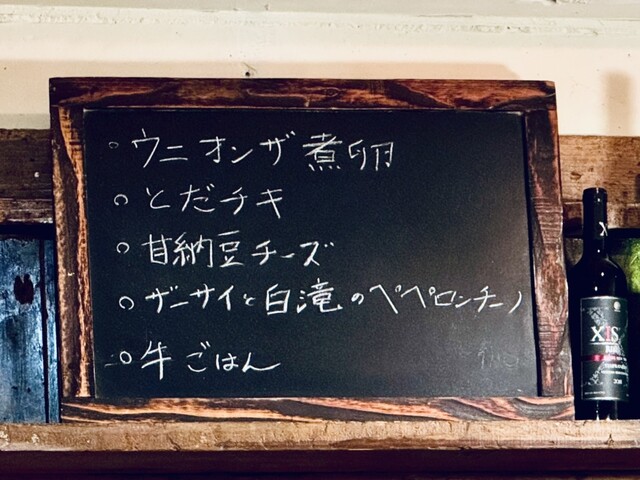 ○ウニオンザ煮卵
○とだチキ
○甘納豆チーズ
○ザーサイと白滝のペペロンチーノ
○牛ごはん
XIS